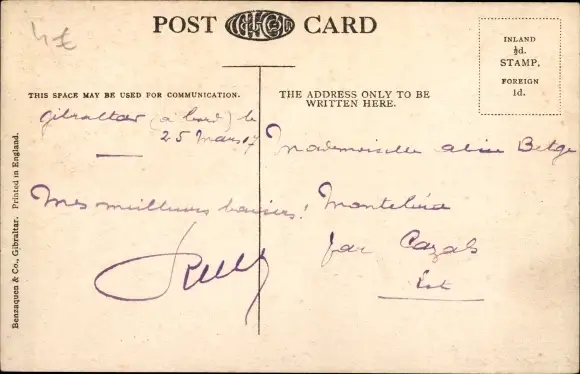 4€
POST CARD
INLAND
½d.
STAMP.
FOREIGN
1d.
THIS SPACE MAY BE USED FOR COMMUNICATION.
THE ADDRESS ONLY TO BE
WRITTEN HERE.
Gibraltar (à bord) le
25 Mars 17
Mes meilleurs baisers!
Mademoiselle Alice Betge
par Cazals
Lot
Benzaquen & Co., Gibraltar. Printed in England.